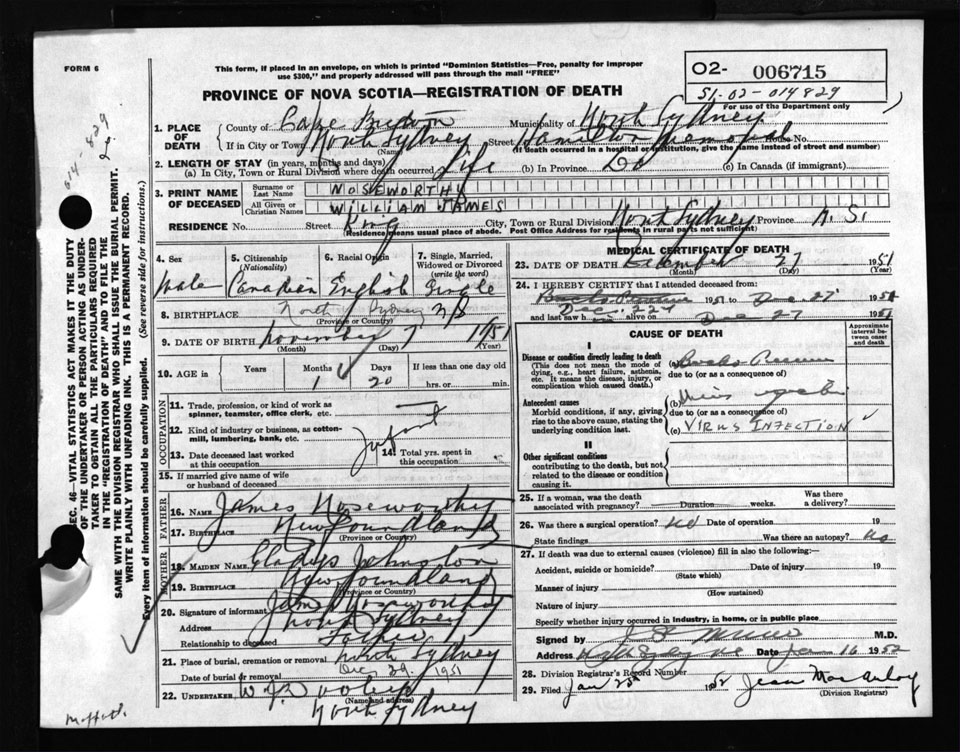 FORM 6
This form, if placed in an envelope, on which is printed "Dominion Statistics—Free, penalty for improper
use $300," and properly addressed will pass through the mail "FREE"
02- 006715
51-02-014829
For use of the Department only
PROVINCE OF NOVA SCOTIA—REGISTRATION OF DEATH
014-829
SEC. 46—VITAL STATISTICS ACT MAKES IT THE DUTY
OF THE UNDERTAKER OR PERSON ACTING AS UNDER-
TAKER TO OBTAIN ALL THE PARTICULARS REQUIRED
IN THE "REGISTRATION OF DEATH" AND TO FILE THE
SAME WITH THE DIVISION REGISTRAR WHO SHALL ISSUE THE BURIAL PERMIT.
WRITE PLAINLY WITH UNFADING INK. THIS IS A PERMANENT RECORD.
Every item of information should be carefully supplied. (See reverse side for instructions.)
1. PLACE OF DEATH
County of Cape Breton Municipality of North Sydney
If in City or Town North Sydney Street Hamilton Memorial House No.
(Name) (If death occurred in a hospital or institution, give the name instead of street and number)
2. LENGTH OF STAY (in years, months and days)
(a) In City, Town or Rural Division where death occurred Life (b) In Province Do (c) In Canada (if immigrant)
3. PRINT NAME OF DECEASED
Surname or Last Name NOSEWORTHY
All Given or Christian Names WILLIAM JAMES
RESIDENCE No. Street King City, Town or Rural Division North Sydney Province N.S.
(Residence means usual place of abode. Post Office Address for residents in rural parts not sufficient)
4. Sex Male
5. Citizenship (Nationality) Canadian
6. Racial Origin English
7. Single, Married, Widowed or Divorced (write the word) Single
8. BIRTHPLACE North Sydney N S
(Province or Country)
9. DATE OF BIRTH November 7 1951
(Month) (Day) (Year)
10. AGE in Years Months 1 Days 20 If less than one day old
hrs. or min.
OCCUPATION
11. Trade, profession, or kind of work as
spinner, teamster, office clerk, etc. —
12. Kind of industry or business, as cotton-
mill, lumbering, bank, etc. Infant
13. Date deceased last worked
at this occupation
14. Total yrs. spent in
this occupation
15. If married give name of wife
or husband of deceased
FATHER
16. NAME James Noseworthy
17. BIRTHPLACE Newfoundland
(Province or Country)
MOTHER
18. MAIDEN NAME Gladys Johnston
19. BIRTHPLACE Newfoundland
(Province or Country)
20. Signature of informant James Noseworthy
Address North Sydney
Relationship to deceased Father
21. Place of burial, cremation or removal North Sydney
Date of burial or removal Dec 29. 1951
22. UNDERTAKER W
(Name and address)
North Sydney
MEDICAL CERTIFICATE OF DEATH
23. DATE OF DEATH December 27 1951
(Month) (Day) (Year)
24. I HEREBY CERTIFY that I attended deceased from:
1951 to Dec. 27 1951
Dec. 22
and last saw h im alive on Dec 27 1951
CAUSE OF DEATH
Approximate interval between onset and death
I
Disease or condition directly leading to death
(This does not mean the mode of
dying, e.g., heart failure, asthenia,
etc. It means the disease, injury, or
complication which caused death.)
(a) Broncho
due to (or as a consequence of)
Antecedent causes
Morbid conditions, if any, giving
rise to the above cause, stating the
underlying condition last.
(b) Virus
due to (or as a consequence of)
(c) VIRUS INFECTION
II
Other significant conditions
contributing to the death, but not
related to the disease or condition
causing it.
25. If a woman, was the death
associated with pregnancy? Duration weeks. Was there
a delivery?
26. Was there surgical operation? No Date of operation 19
State findings Was there an autopsy? No
27. If death was due to external causes (violence) fill in also the following:—
Accident, suicide or homicide? Date of injury 19
(State which)
Manner of injury
(How sustained)
Nature of injury
Specify whether injury occurred in industry, in home, or in public place
Signed by M.D.
Address Date Jan 16 1952
28. Division Registrar's Record Number
29. Filed Jan 25th 1952 Jean MacAulay
(Division Registrar)